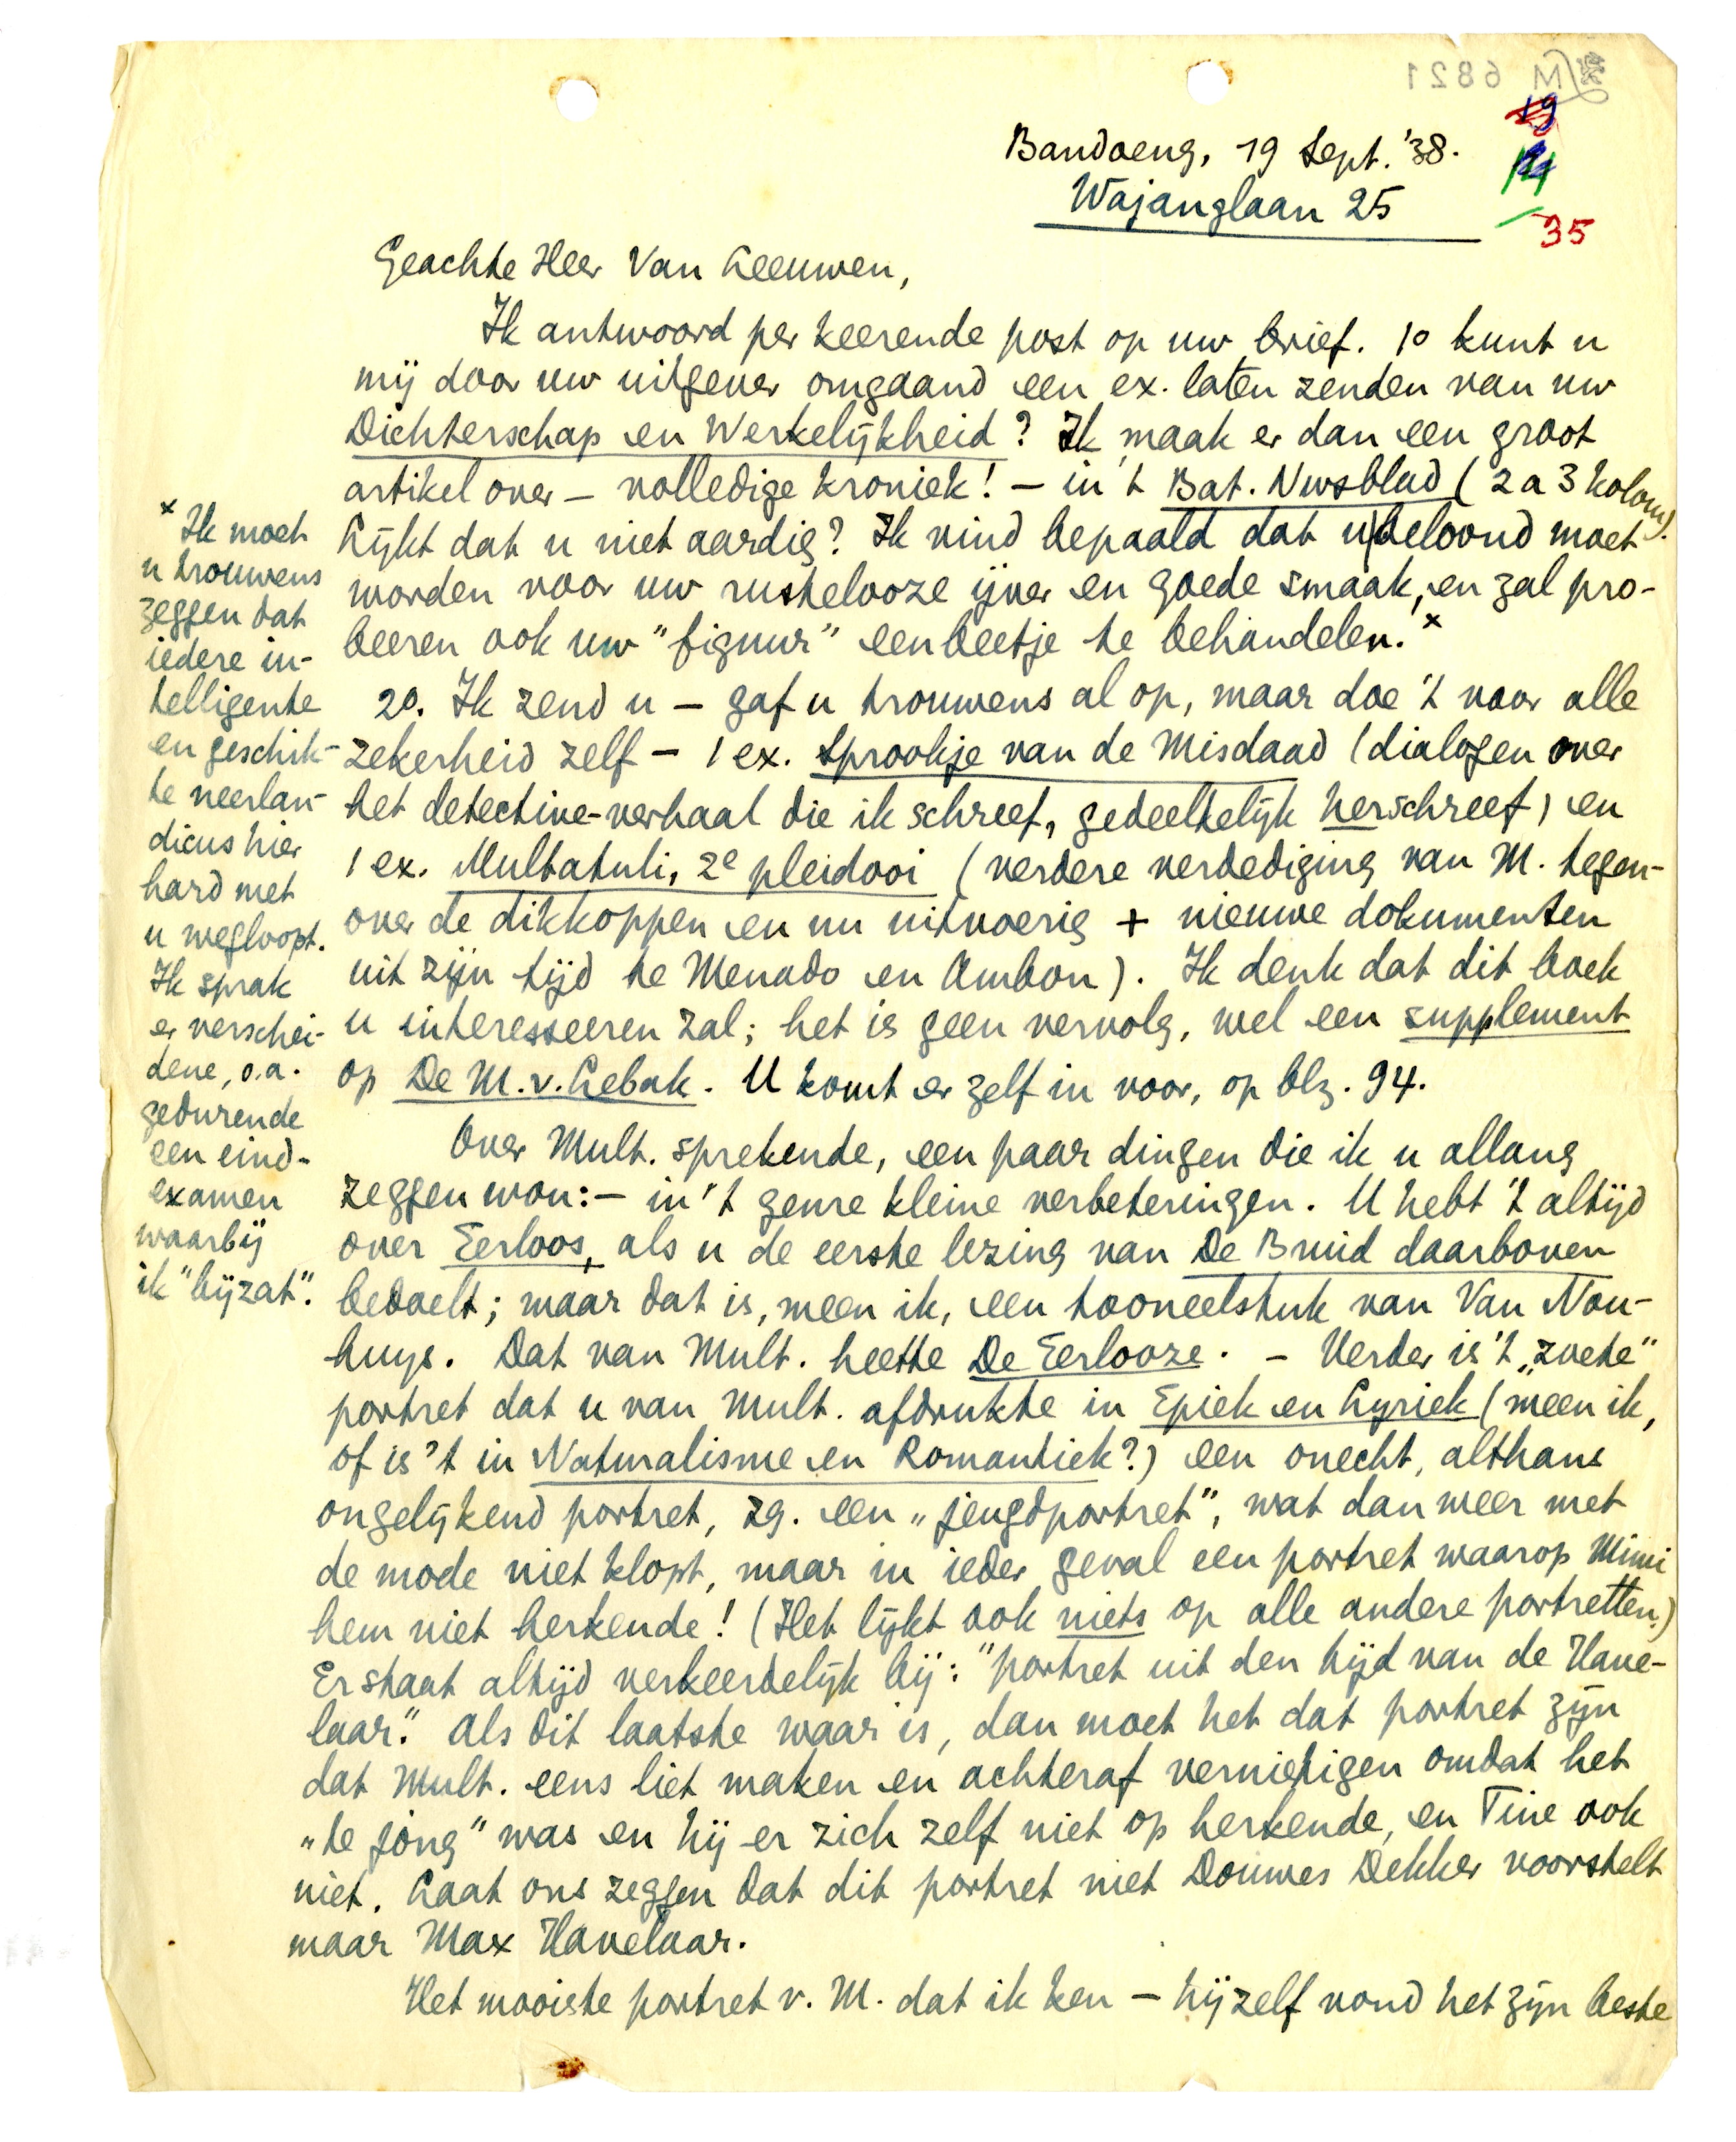 M 6821
19
14
35
Bandoeng, 19 Sept. '38.
Wajanglaan 25
Geachte Heer Van Leeuwen,
Ik antwoord per keerende post op uw brief. 1o kunt u
mij door uw uitgever omgaand een ex. laten zenden van uw
Dichterschap en Werkelijkheid? Ik maak er dan een groot
artikel over – volledige kroniek! – in 't Bat. Nwsblad (2 a 3 kolom).
Lijkt dat u niet aardig? Ik vind bepaald dat u beloond moet
worden voor uw rustelooze ijver en goede smaak, en zal pro-
beeren ook uw "figuur" een beetje te behandelen.x
2o. Ik zend u – gaf u trouwens al op, maar doe 't voor alle
zekerheid zelf – 1 ex. Sprookje van de Misdaad (dialogen over
het detective-verhaal die ik schreef, gedeeltelijk herschreef) en
1 ex. Multatuli, 2e pleidooi (verdere verdediging van M. tegen-
over de dikkoppen en nu uitvoerig + nieuwe dokumenten
uit zijn tijd te Menado en Ambon). Ik denk dat dit boek
u interesseeren zal; het is geen vervolg, wel een supplement
op De M. v. Lebak. U komt er zelf in voor, op blz. 94.
Over Mult. sprekende, een paar dingen die ik u allang
zeggen wou: – in 't genre kleine verbeteringen. U hebt 't altijd
over Eerloos, als u de eerste lezing van De Bruid daarboven
bedoelt; maar dat is, meen ik, een tooneelstuk van Van Nou-
huys. Dat van Mult. heette De Eerlooze. – Verder is 't „zoete"
portret dat u van Mult. afdrukte in Epiek en Lyriek (meen ik,
of is 't in Naturalisme en Romantiek?) een onecht, althans
ongelijkend portret, zg. een „jeugdportret", wat dan weer met
de mode niet klopt, maar in ieder geval een portret waarop Mimi
hem niet herkende! (Het lijkt ook niets op alle andere portretten.)
Er staat altijd verkeerdelijk bij: "portret uit den tijd van de Have-
laar." Als dit laatste waar is, dan moet het dat portret zijn
dat Mult. eens liet maken en achteraf vernietigen omdat het
„te jong" was en hij er zich zelf niet op herkende, en Tine ook
niet. Laat ons zeggen dat dit portret niet Douwes Dekker voorstelt
maar Max Havelaar.
Het mooiste portret v. M. dat ik ken – hijzelf vond het zijn beste
x Ik moet
u trouwens
zeggen dat
iedere in-
telligente
en geschik-
te neerlan-
dicus hier
hard met
u wegloopt.
Ik sprak
er verschei-
dene, o.a.
gedurende
een eind-
examen
waarbij
ik "bijzat".